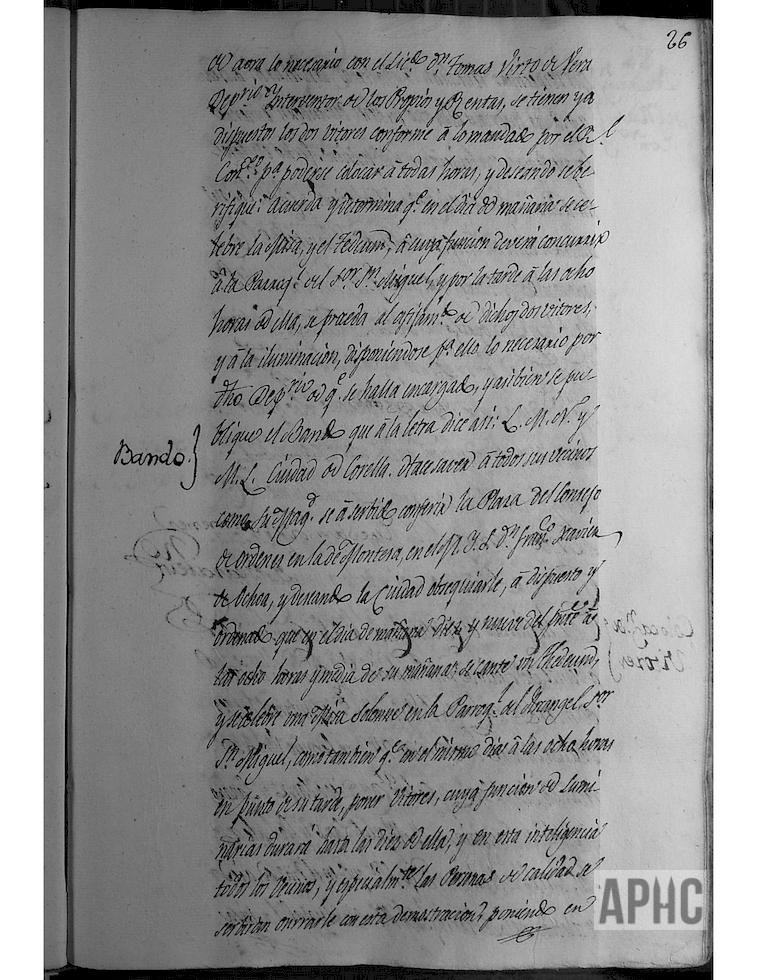 26
de aora lo necesario con el Lic.do Dn. Tomas Virto de Vera
Depº.rio e Interventor de los Propios y Rentas, se tienen ya
dispuestos los dos vitores conforme â lo mandado por el Rl.
Con.º pª. poderse colocar â todas horas, y deseando se be-
rifique: Acuerda y determina q.e en el dia de mañana se ce-
lebre la Misa, y el Tedeum, â cuya funcion deverá concurrir
â la Parroq.ª del Sr. Sn. Miguel, y por la tarde â las ocho
horas de ella, se proceda al afijam.to de dichos dos vitores,
y â la iluminacion, disponiendose pª. ello lo necesario por
dho. Dep.rio de q.e se halla encargado, y asi bien se pu-
blique el Bando que â la letra dice asi: L. M. N. y
Bando.}
M. L. Ciudad de Corella. Hace saver â todos sus vecinos
como Su Mag.d se â serbido conferir la Plaza del Consejo
de Ordenes en la de Montesa, en el M. Y. S. Dn. Fran.co Xavier
de Ochoa, y deseando la Ciudad obsequiarle, â dispuesto y
ordenado que en el dia de mañana diez y nueve del pnte. â
las ocho horas y media de su mañana se cante un Thedeum,
y se celebre una Misa Solemne en la Parroq.l del Arcangel Sor.
Sn. Miguel, como tambien q.e en el mismo dia â las ocho horas
en punto de su tarde, poner Vitores, cuya funcion de Lumi-
narias durará hasta las diez de ella, y en esta inteligencia
todos los vecinos, y especialm.te las Personas de calidad se
serbiran onrrarle con esta demostracion, poniendo en
APHC